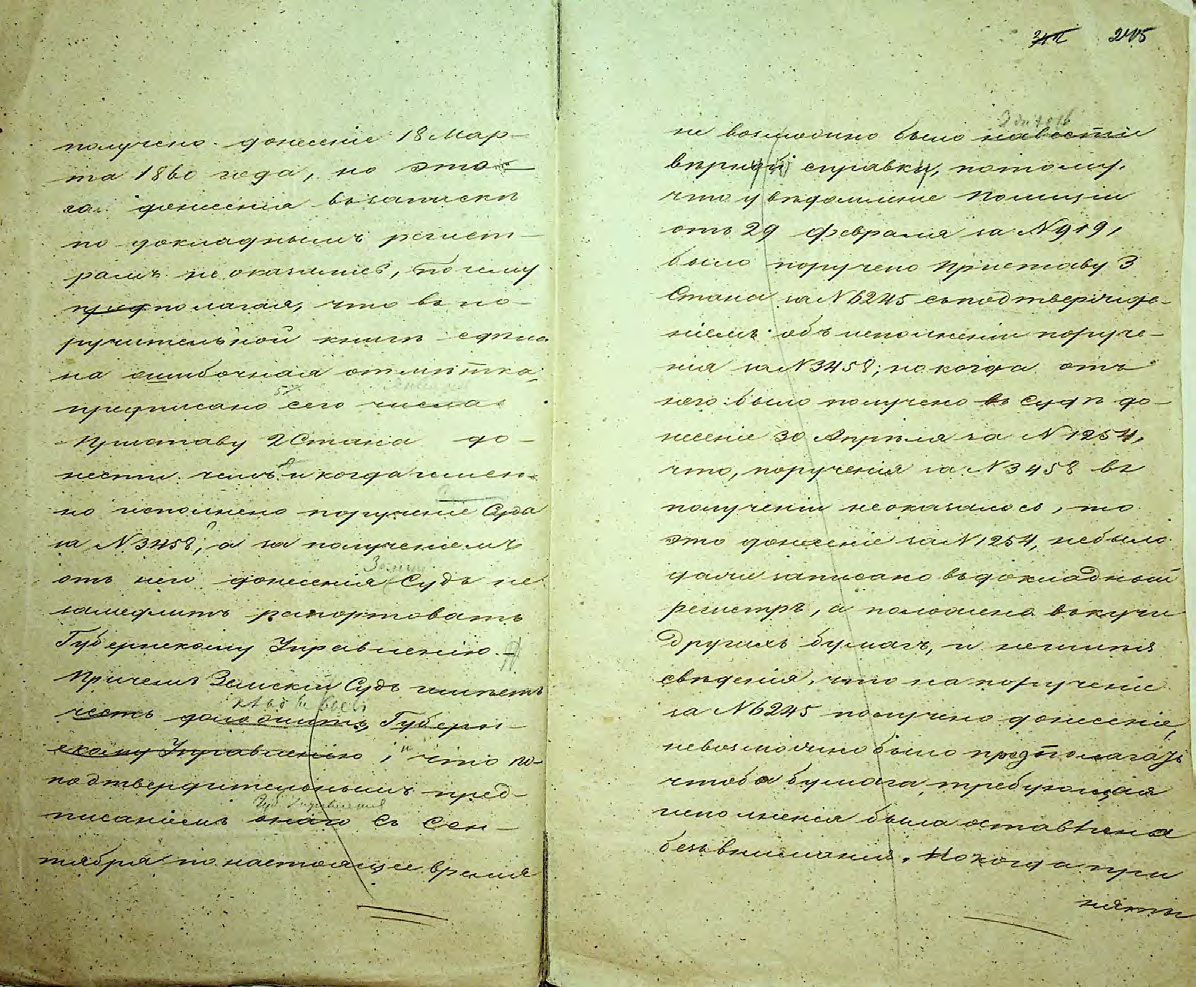 получено донесеніе 18 Мар-
та 1860 года, но это-
го донесенія въ запискѣ
по докладнымъ регист-
рамъ не оказалось, почему
предполагая, что въ по-
ручительной книгѣ сдѣла
на ошибочная отмѣтка,
предписано сего числа
Приставу 2 Стана до-
нести кемъ и когда имен-
но исполнено порученіе Суда
за N 3458, а за полученіемъ
Земск
отъ него донесенія Судъ не
замедлитъ рапортовать
Губернскому Управленію.
Причемъ Земскій Судъ имѣетъ
честь доложить, Губерн-
скому Управленію, что по
подтвердительнымъ пред-
Губ Правленія
писаніемъ онаго съ Сен-
тября по настоящее время
245
не возможно было навести
вѣрной справки, потому,
что увѣдомленіе Полиціи
отъ 29 Февраля за N 919,
было поручено Приставу 3
Стана за N 6245 съ подтвержде-
ніемъ объ исполненіи поруче-
нія за N 3458; но когда отъ
него было получено въ Судѣ до-
несеніе 30 Апрѣля за N 1254,
что, порученія за N 3458 въ
полученіи не оказалось, то
это донесеніе за N 1254, не было
даже записано въ докладный
регистръ, а положено въ кучи
другихъ бумагъ, и не имѣя
свѣденія, что на порученіе
за N 6245 получено донесеніе,
невозможно было предполагать
чтобъ бумага, требующая
исполненія была оставлена
безъ вниманія. Но когда при
нятъ